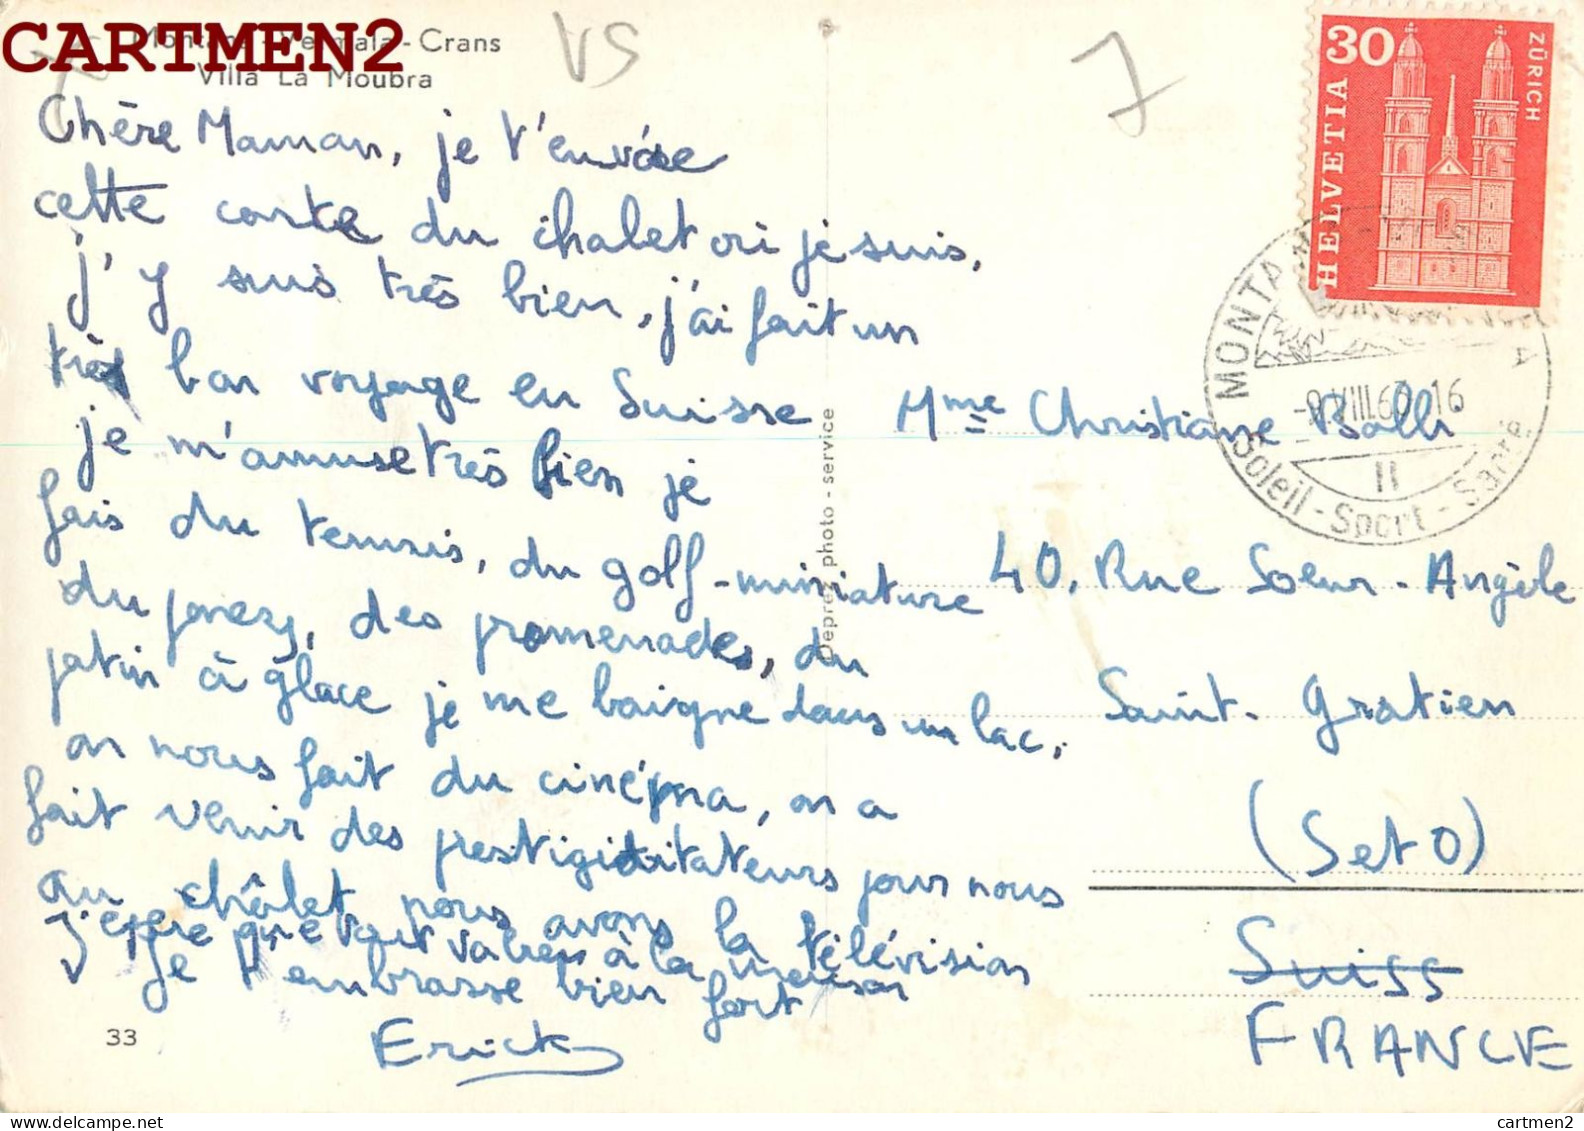 CARTMEN2
Montana-Vermala-Crans
Villa La Moubra
VS
7
Chère Maman, je t'envoie
cette carte du chalet où je suis,
j'y suis très bien, j'ai fait un
très bon voyage en Suisse
je m'amuse très bien je
fais du tennis, du golf-miniature
du poney, des promenades, du
patin à glace je me baigne dans un lac,
on nous fait du cinéma, on a
fait venir des prestigiditateurs pour nous
au châlet nous avons la télévision
J'espère que tout va bien à la maison
je t'embrasse bien fort
Erick
33
Deprez photo - service
30
HELVETIA
ZÜRICH
MONTANA
-9.VIII.63 16
II
Soleil - Sport - Santé
Mme Christiane
40, Rue Soeur-Angèle
Saint-Gratien
(Set O)
Suiss
FRANCE
delcampe.net
cartmen2